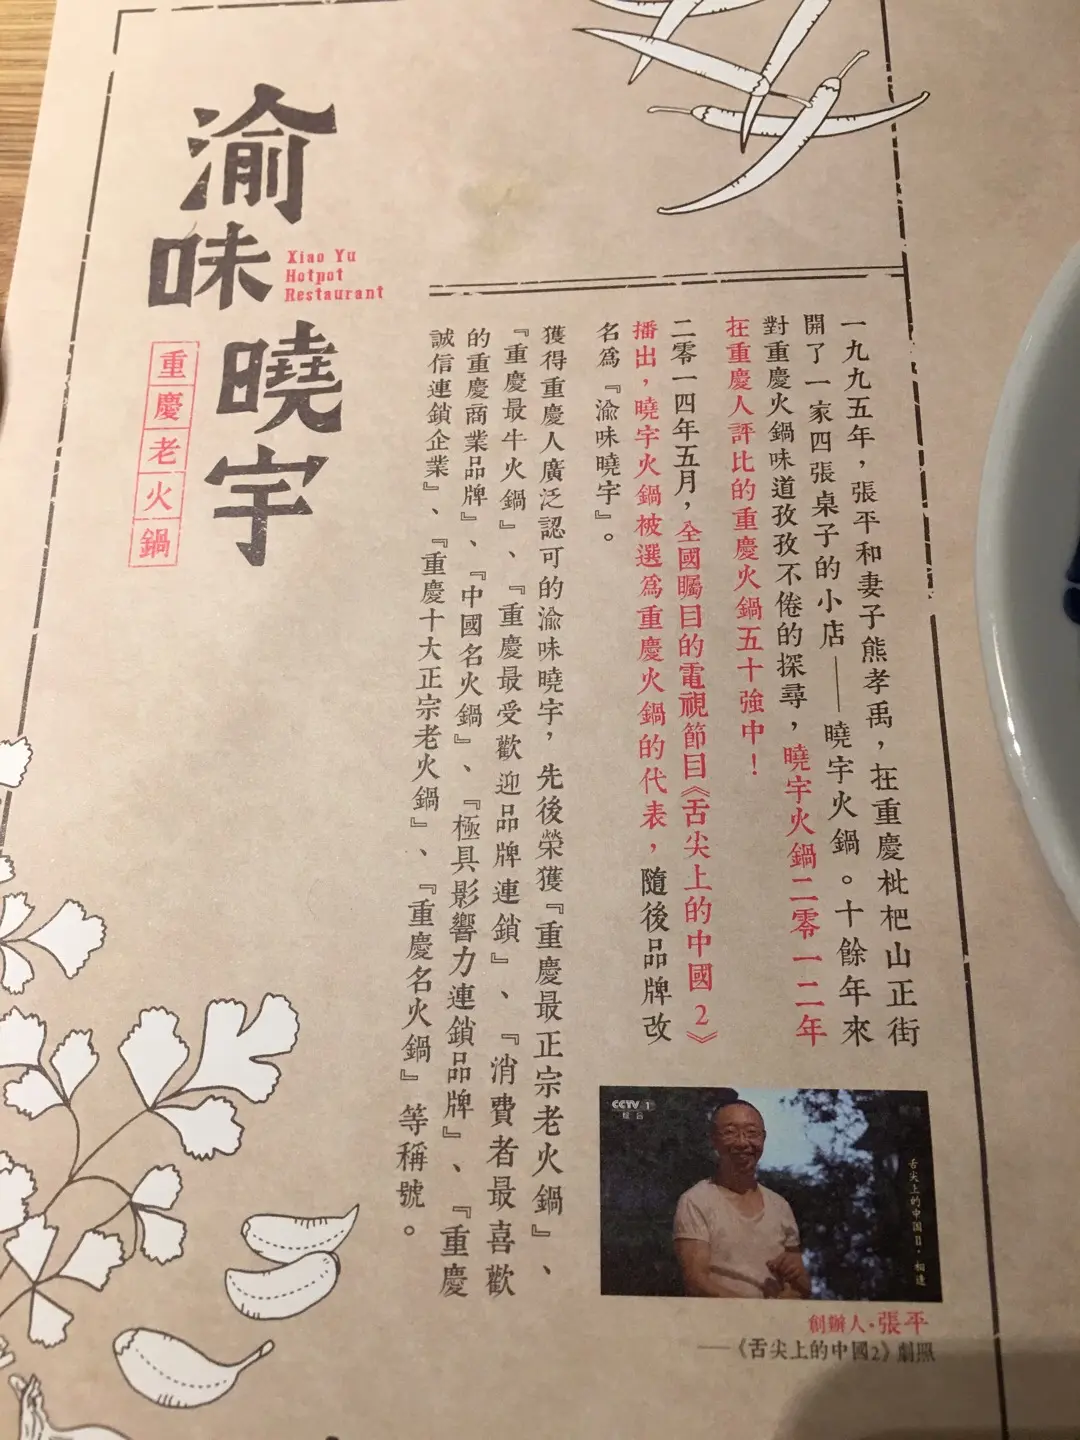 渝味曉宇
Xiao Yu
Hotpot
Restaurant
重慶老火鍋
一九九五年，張平和妻子熊孝禹，在重慶枇杷山正街
開了一家四張桌子的小店——曉宇火鍋。十餘年來
對重慶火鍋味道孜孜不倦的探尋，曉宇火鍋二零一二年
在重慶人評比的重慶火鍋五十強中！
二零一四年五月，全國矚目的電視節目《舌尖上的中國2》
播出，曉宇火鍋被選為重慶火鍋的代表，隨後品牌改
名為『渝味曉宇』。
獲得重慶人廣泛認可的渝味曉宇，先後榮獲『重慶最正宗老火鍋』、
『重慶最牛火鍋』、『重慶最受歡迎品牌連鎖』、『消費者最喜歡
的重慶商業品牌』、『中國名火鍋』、『極具影響力連鎖品牌』、『重慶
誠信連鎖企業』、『重慶十大正宗老火鍋』、『重慶名火鍋』等稱號。
CCTV 1
综合
舌尖上的中国Ⅱ·相逢
創辦人·張平
——《舌尖上的中國2》劇照